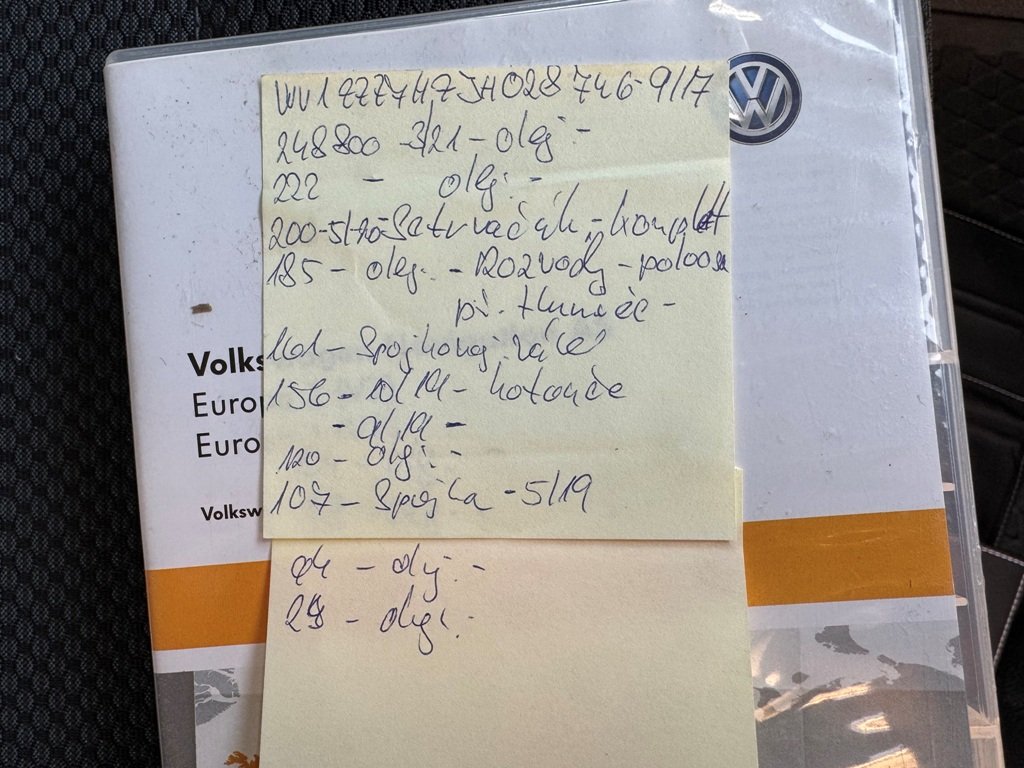 WV1ZZZ7HZJH028746-9/17
248800 -3/21 - olej -
222 - olej -
200-5/20-Setrvačník - komplet
185 - olej - Rozvody - poloosa
př. tlumiče -
161 - Spojkový válec
156 - 10/19 - kotouče
- 9/19 -
120 - olej -
107 - Spojka - 5/19
94 - olej -
28 - olej
Volks
Euro
Euro
Volksw